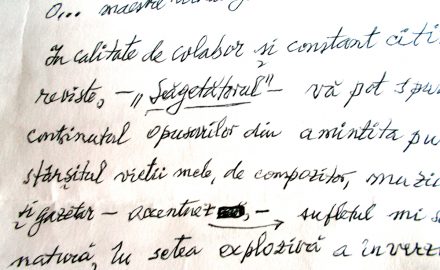 O... maestre
În calitate de colabor și constant citi
reviste, – „Săgetătorul” – vă pot spu
conținutul opusurilor din amintita pu
sfârșitul vieții mele, de compozitor, muzic
și gazetar – accentuez – sufletul mi s
natură, în setea explozivă a inverz